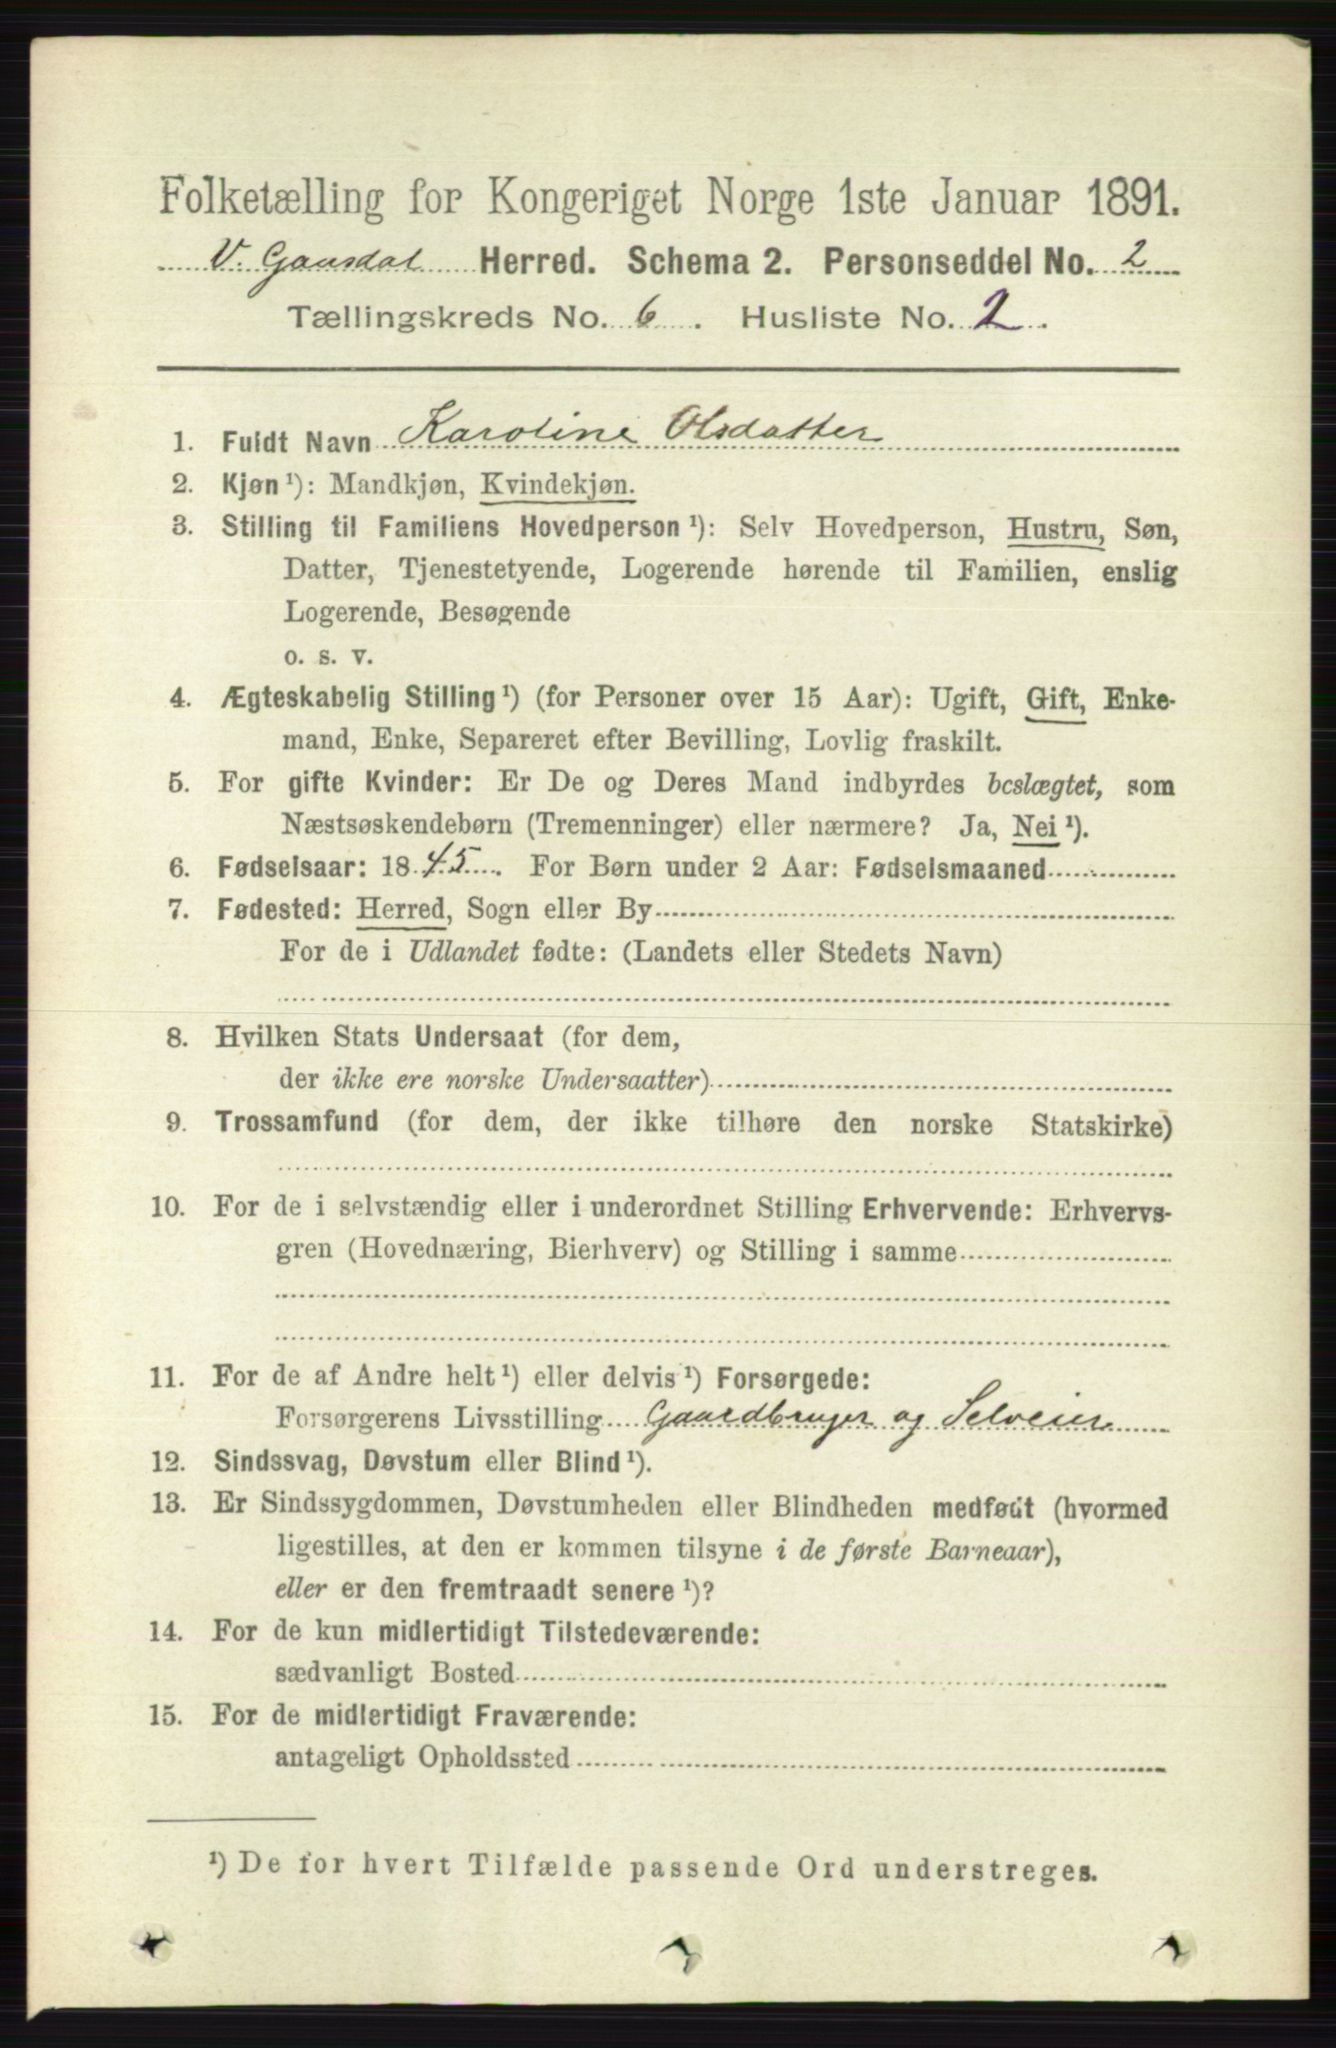 Folketælling for Kongeriget Norge 1ste Januar 1891.
V. Gausdal Herred. Schema 2. Personseddel No. 2
Tællingskreds No. 6. Husliste No. 2.
1. Fuldt Navn Karoline Olsdatter
2. Kjøn¹): Mandkjøn, Kvindekjøn.
3. Stilling til Familiens Hovedperson¹): Selv Hovedperson, Hustru, Søn,
Datter, Tjenestetyende, Logerende hørende til Familien, enslig
Logerende, Besøgende
o. s. v.
4. Ægteskabelig Stilling¹) (for Personer over 15 Aar): Ugift, Gift, Enke-
mand, Enke, Separeret efter Bevilling, Lovlig fraskilt.
5. For gifte Kvinder: Er De og Deres Mand indbyrdes beslægtet, som
Næstsøskendebørn (Tremenninger) eller nærmere? Ja, Nei¹).
6. Fødselsaar: 1845. For Børn under 2 Aar: Fødselsmaaned
7. Fødested: Herred, Sogn eller By
For de i Udlandet fødte: (Landets eller Stedets Navn)
8. Hvilken Stats Undersaat (for dem,
der ikke ere norske Undersaatter)
9. Trossamfund (for dem, der ikke tilhøre den norske Statskirke)
10. For de i selvstændig eller i underordnet Stilling Erhvervende: Erhvervs-
gren (Hovednæring, Bierhverv) og Stilling i samme
11. For de af Andre helt¹) eller delvis¹) Forsørgede:
Forsørgerens Livsstilling Gaardbruger og Selveier
12. Sindssvag, Døvstum eller Blind¹).
13. Er Sindssygdommen, Døvstumheden eller Blindheden medfødt (hvormed
ligestilles, at den er kommen tilsyne i de første Barneaar),
eller er den fremtraadt senere¹)?
14. For de kun midlertidigt Tilstedeværende:
sædvanligt Bosted
15. For de midlertidigt Fraværende:
antageligt Opholdssted
¹) De for hvert Tilfælde passende Ord understreges.